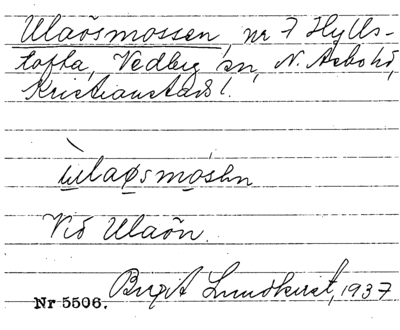 Ulaösmossen, nr 7 Hylls-
tofta, Vedby sn, N. Åsbo hd,
Kristianstads l.
ùlaøsmósln
Vid Ulaön.
Birgit Lundkvist, 1937
Nr 5506.